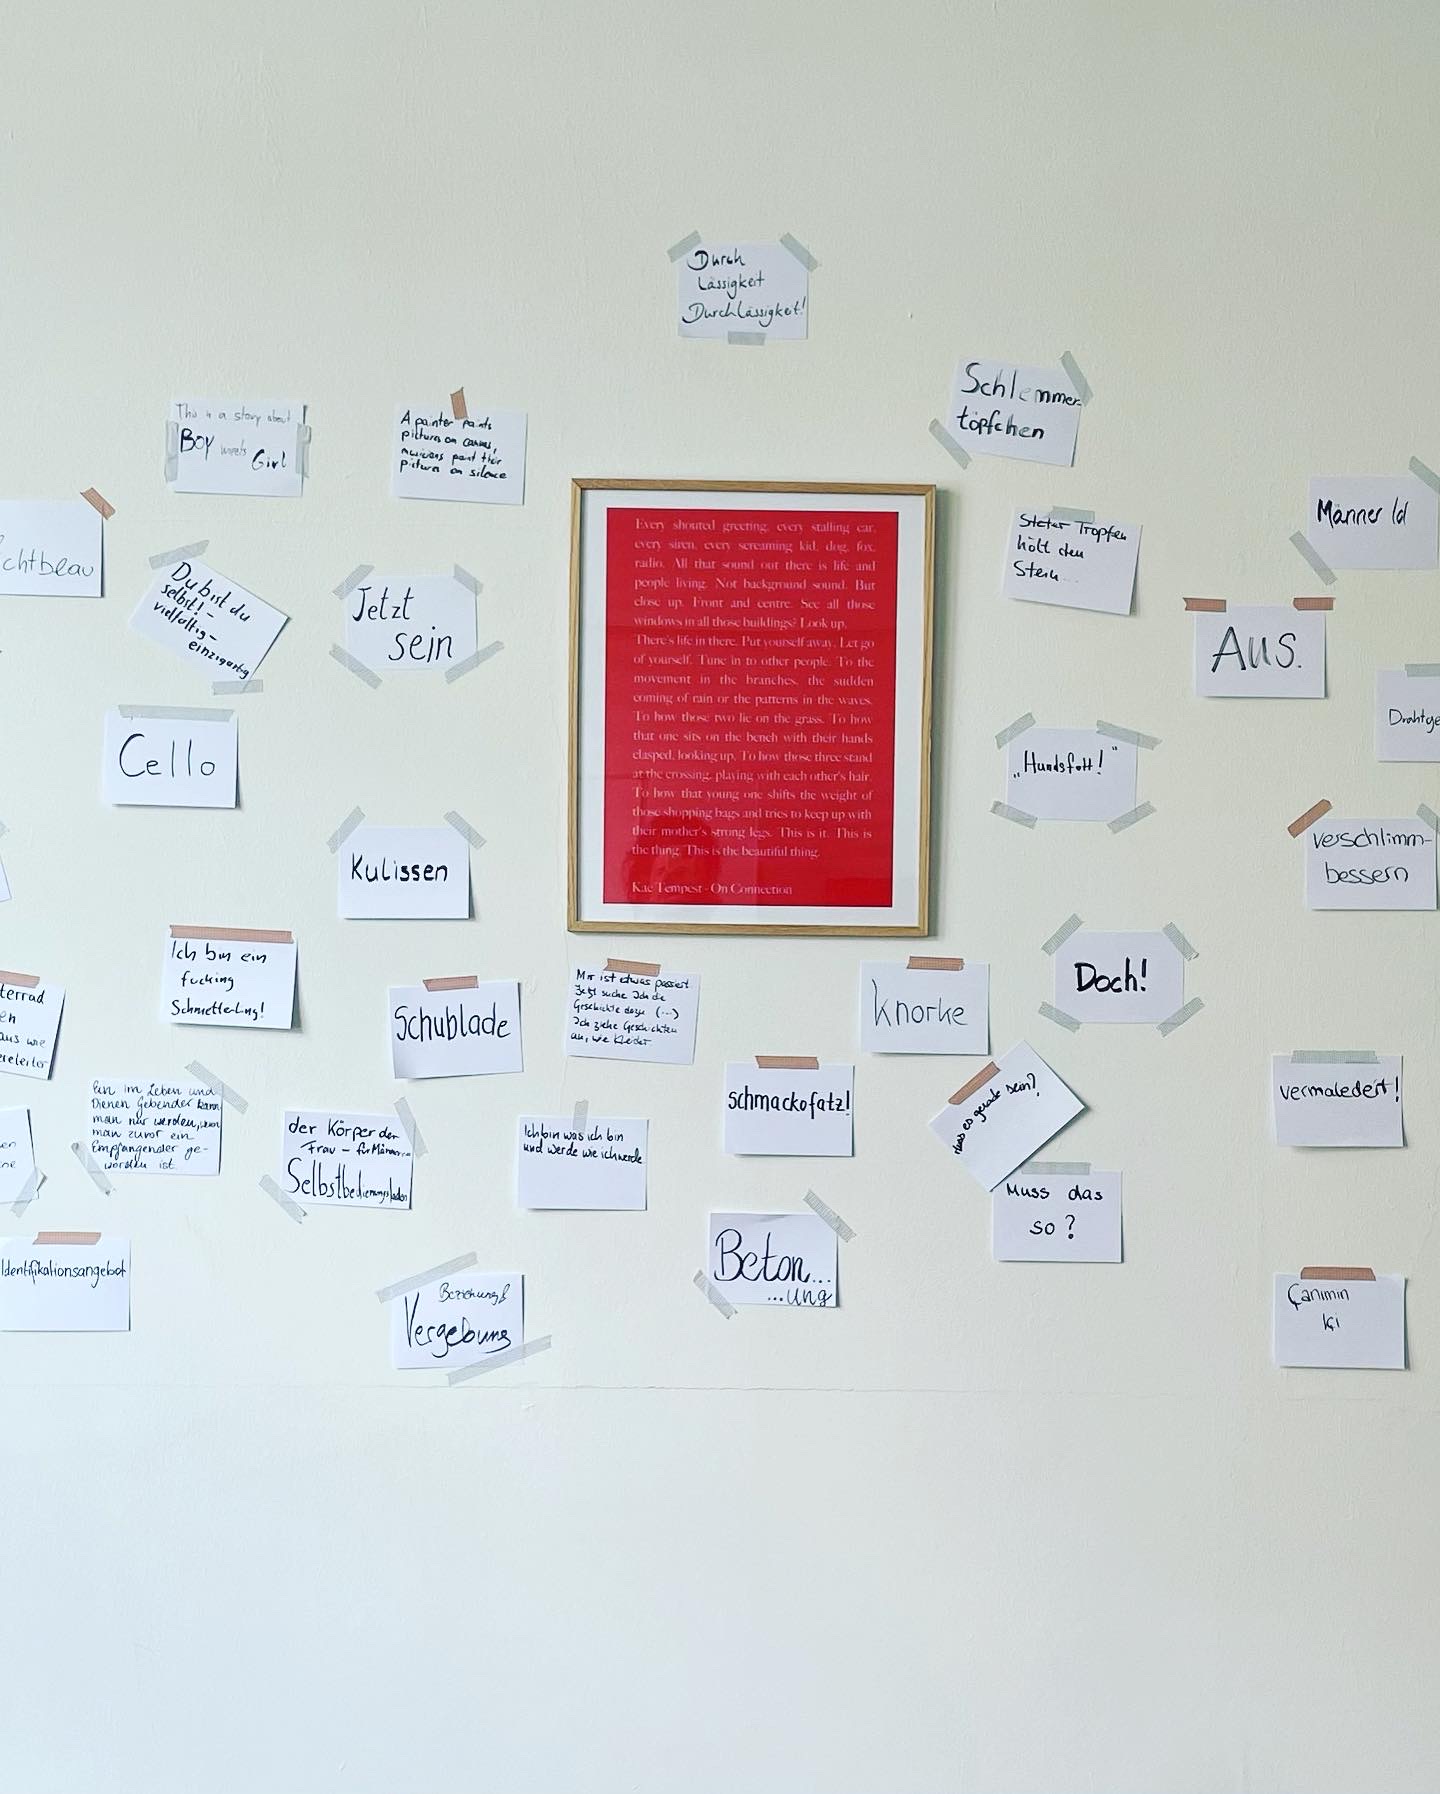 Durch
Lässigkeit
Durchlässigkeit!
Schlemmer-
töpfchen
This is a story about
Boy meets Girl
A painter paints
pictures on canvas,
musicians paint their
pictures on silence
Männer
chtbeau
Du bist du
selbst! -
vielfältig -
einzigartig
Jetzt
sein
Every shouted greeting, every stalling car,
every siren, every screaming kid, dog, fox,
radio. All that sound out there is life and
people living. Not background sound. But
close up. Front and centre. See all those
windows in all those buildings? Look up.
There's life in there. Put yourself away. Let go
of yourself. Tune in to other people. To the
movement in the branches, the sudden
coming of rain or the patterns in the waves.
To how those two lie on the grass. To how
that one sits on the bench with their hands
clasped, looking up. To how those three stand
at the crossing, playing with each other's hair.
To how that young one shifts the weight of
those shopping bags and tries to keep up with
their mother's strong legs. This is it. This is
the thing. This is the beautiful thing.
Kae Tempest - On Connection
Steter Tropfen
hölt den
Stein...
Aus.
Drahtge
Cello
„Hundsfott!"
Kulissen
verschlimm-
bessern
Ich bin ein
fucking
Schmetterling!
terrad
en
aus wie
Schublade
Mir ist etwas passiert
Jetzt suche ich die
Geschichte dazu (...)
Ich ziehe Geschichten
an, wie Kleider.
knorke
Doch!
Ein im Leben und
Dienen Gebender kann
man nur werden, wenn
man zuvor ein
Empfangender ge-
worden ist.
der Körper der
Frau - für Männer
Selbstbedienungsladen
Ich bin was ich bin
und werde wie ich werde
schmackofatz!
muss es gerade sein?
Muss das
so?
vermaledeit!
en
ne
Identifikationsangebot
Beziehung &
Vergebung
Beton...
...ung
Çanımın
İçi